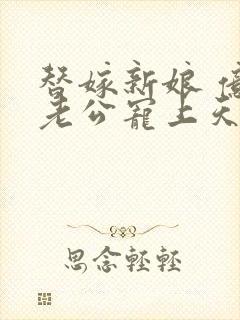 替嫁新娘 億
老公寵上天
思念輕輕